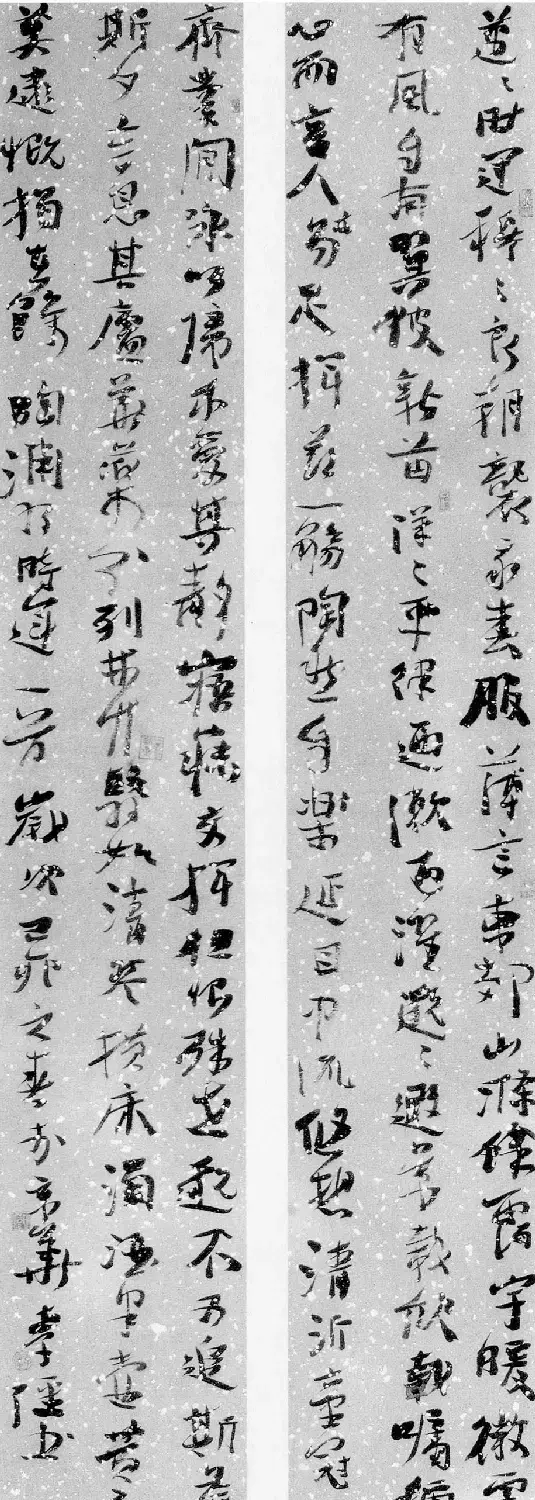 邁〻時運穆〻良朝襲我春服薄言東郊山滌餘靄宇暖微
有風自南翼彼新苗洋〻平津廼漱廼濯邈〻遐景載欣載矚稱
心而言人亦易足揮茲一觴陶然自樂延目中流悠想清沂童冠
齊業閒詠以歸我愛其靜寤寐交揮但恨殊世邈不可追斯晨
斯夕言息其廬華藥分列林竹翳如清琴橫床濁酒半壺黃
莫逮慨獨在餘 陶淵明時運一首 歲次己卯之春於京華李書